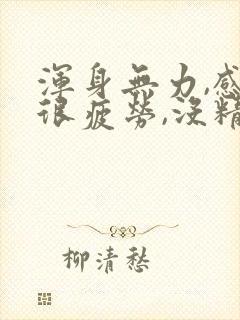 渾身無力,感
很疲勞,沒精
柳清愁